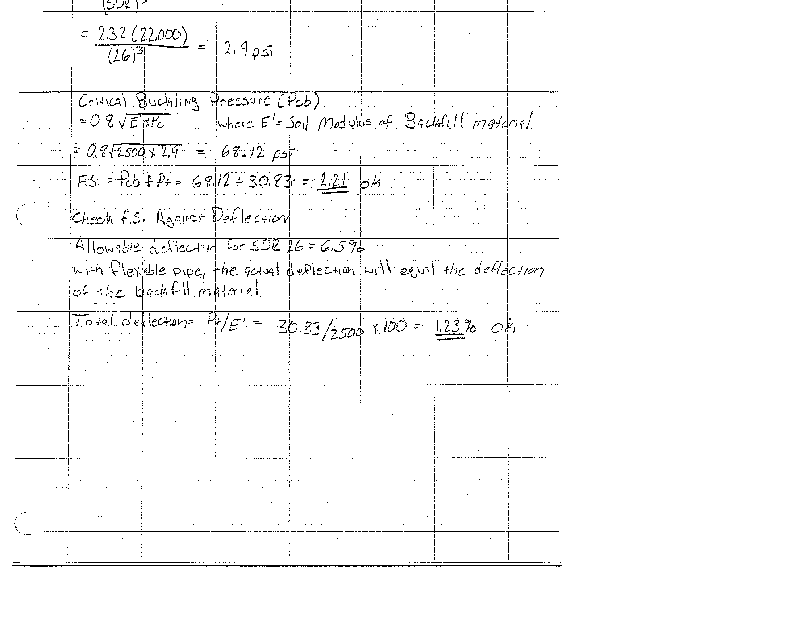 (SDR)³
= 232(22,000) / (26)³ = 2.9 psi
Critical Buckling Pressure (Pcb)
= 0.8 √E'×Pc where E' = Soil Modulus of Backfill material
= 0.8 √2500 × 2.9 = 68.12 psi
F.S. = Pcb ÷ Pt = 68.12 ÷ 30.83 = 2.21 ok
Check F.S. Against Deflection
Allowable deflection for SDR 26 = 6.5%
with flexible pipe, the actual deflection will equal the deflection
of the backfill material.
Total deflection = Pt/E' = 30.83/2500 × 100 = 1.23% ok